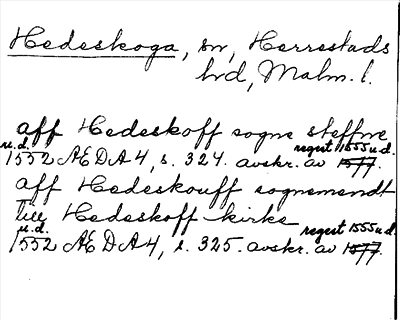 Hedeskoga, sn, Herrestads
hd, Malm. l.
aff Hedeskoff sogne steffne
u.d. regest 1555 u.d.
1552 ÆDA 4, s. 324. avskr. av 1577.
aff Hedeskouff sognemendt
till Hedeskoff kirke
u.d. regest 1555 u.d.
1552 ÆDA 4, s. 325. avskr. av 1577.